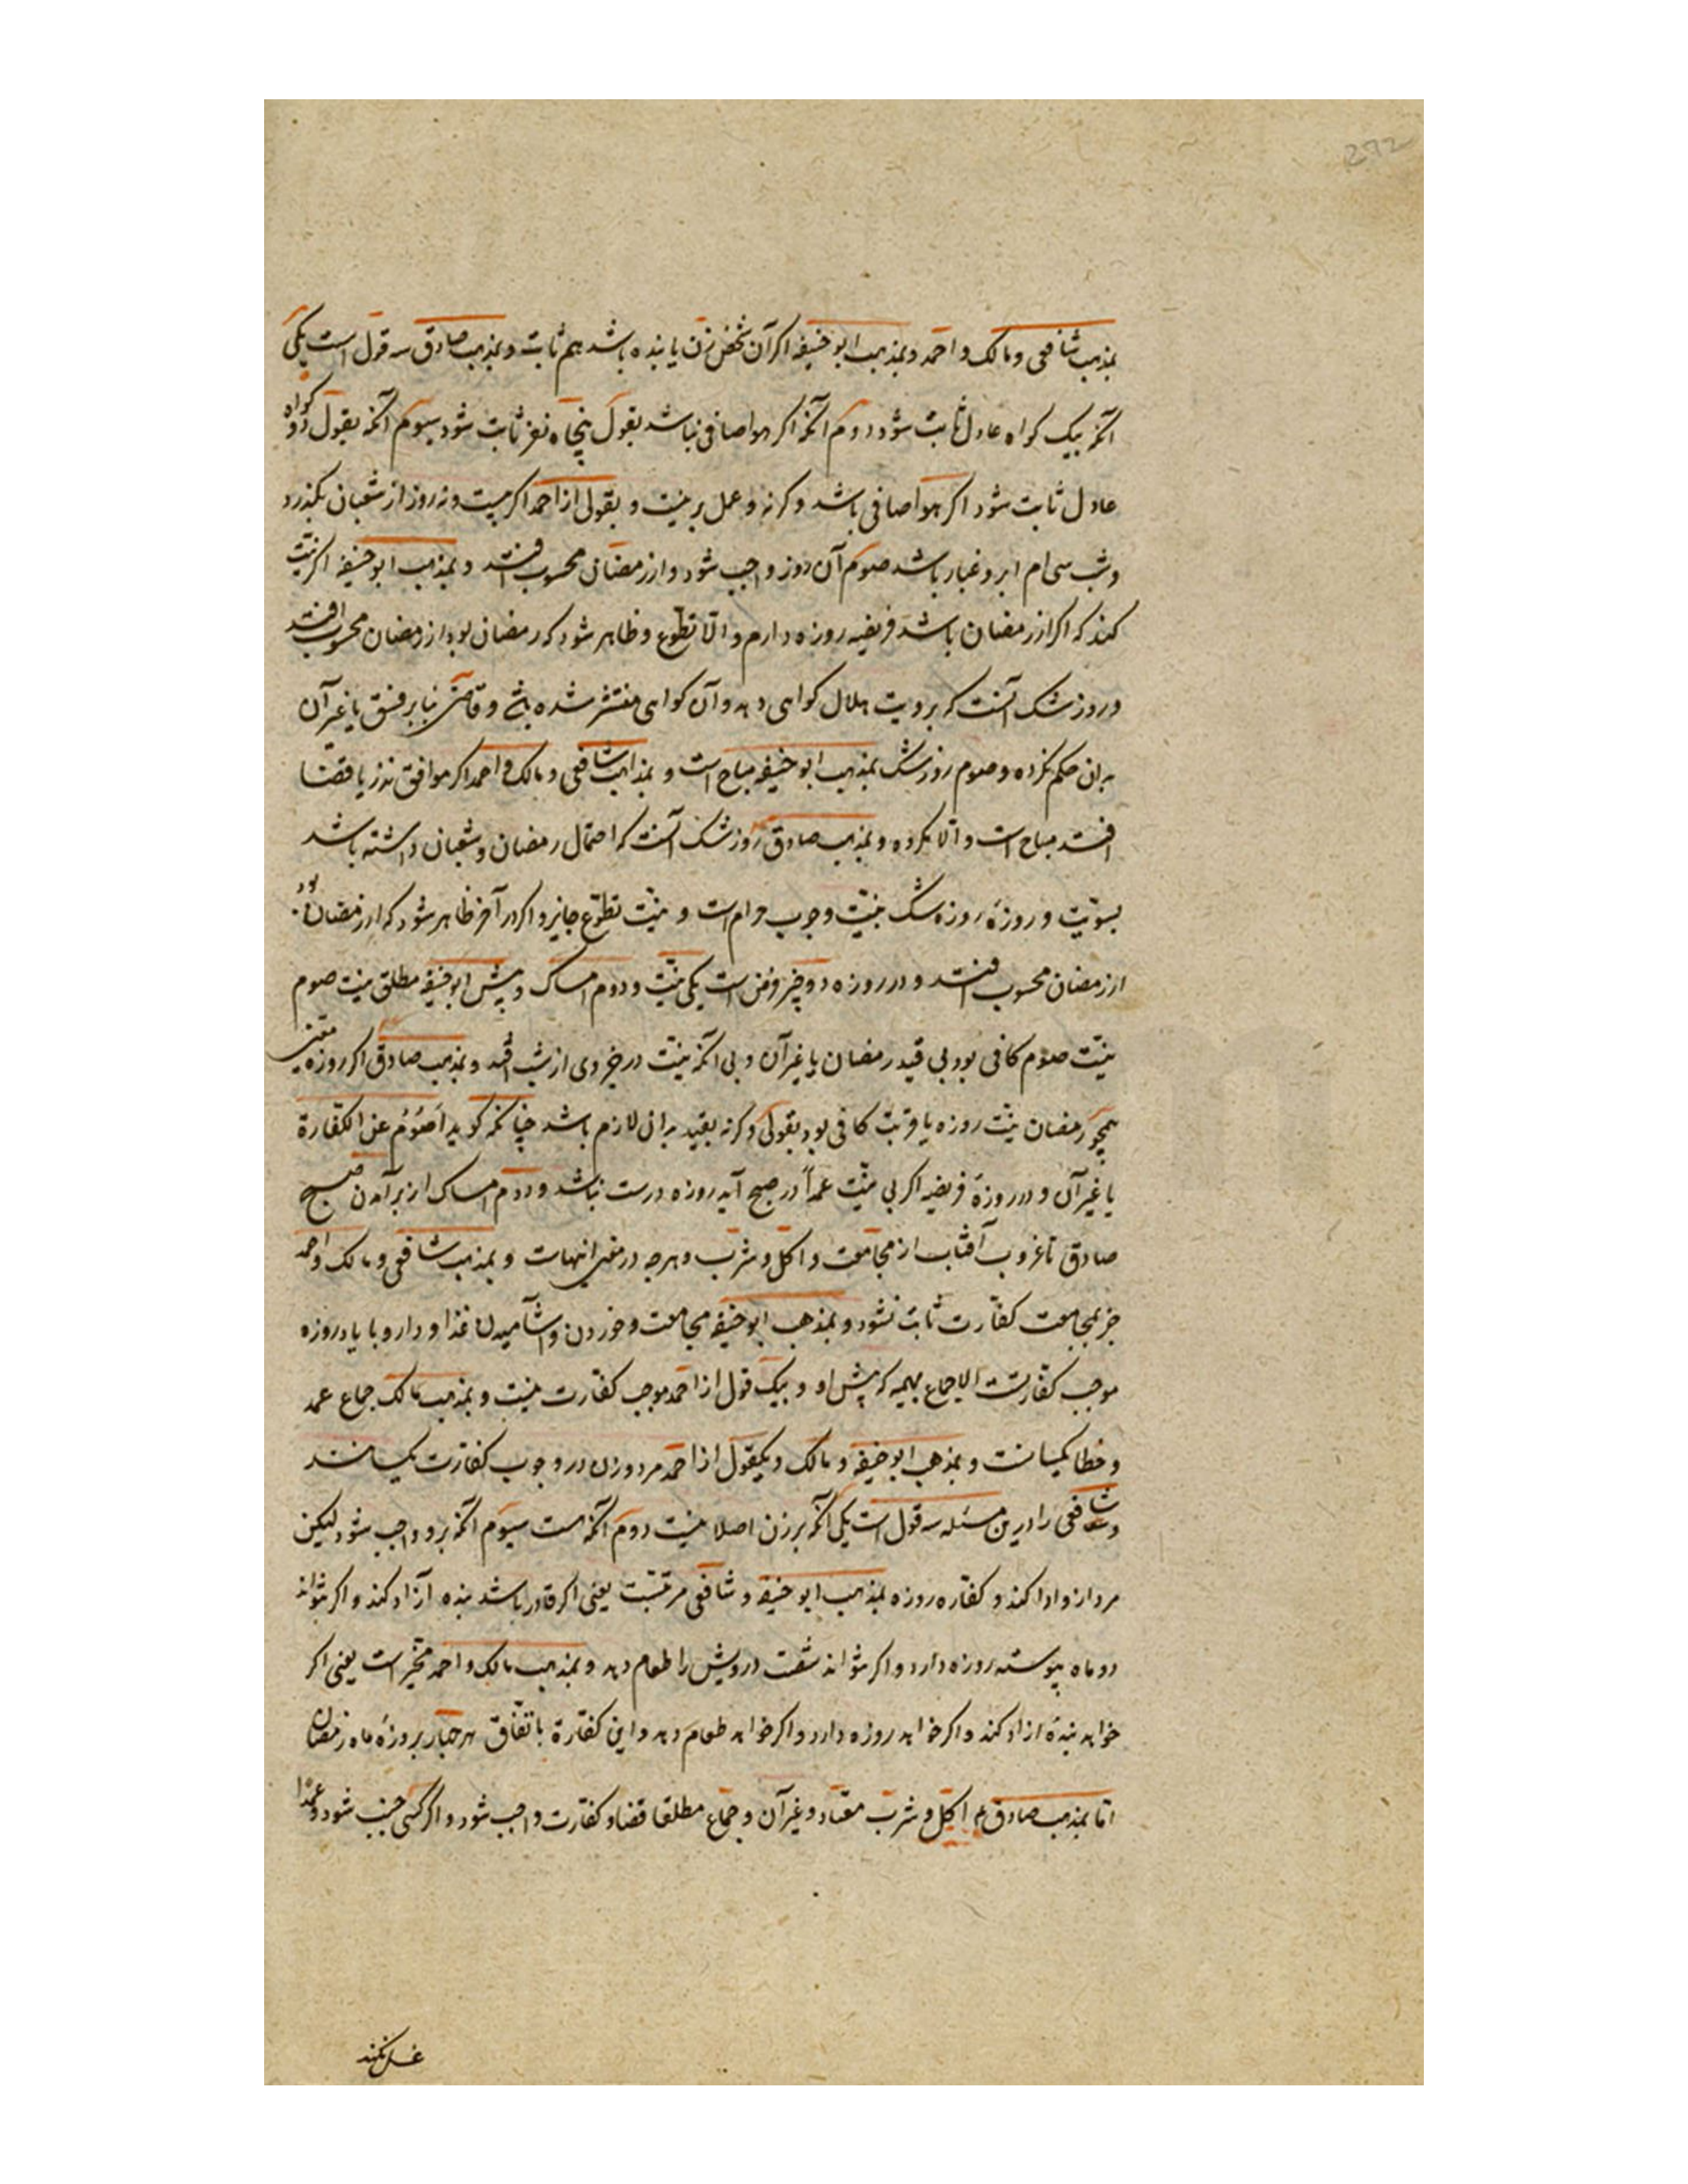 292
بمذهب شافعی و مالک و احمد و بمذهب ابو حنیفه اکر آن شخص زن یا بنده باشد هم ثابت و بمذهب صادق سه قول است یکی
آنکه بیک کواه عادل ثابت شود دوم آنکه اکر هوا صافی نباشد بقول پنجاه نفر ثابت شود سیوم آنکه بقول دو کواه
عادل ثابت شود اکر هوا صافی باشد و کرنه و عمل بر نیت و بقولی از احمد اکر بیست و نه روز از شعبان بکذرد
و شب سی ام ابر و غبار باشد صوم آن روز واجب شود و از رمضان محسوب افتد و بمذهب ابو حنیفه اکر نیّت
کند که اکر از رمضان باشد فریضه روزه دارم و الّا تطوّع و ظاهر شود که رمضان بود از رمضان محسوب افتد
و روز شک آنست که برویت هلال کواهی دهد و آن کواهی منتشر شده باشد و قاضی بنا بر فسق یا غیر آن
بدان حکم نکرده و صوم روز شک بمذهب ابو حنیفه مباح است و بمذاهب شافعی و مالک و احمد اکر موافق نذر یا قضا
افتد مباح است و الّا مکروه و بمذهب صادق روز شک آنست که احتمال رمضان و شعبان داشته باشد
بسوّیت و روزهٔ روزه شک بنیّت وجوب حرام است و بنیّت تطوّع جایز و اکر در آخر ظاهر شود که از رمضان بود
از رمضان محسوب افتد و در روزه دو چیز فرض است یکی نیّت و دوم امساک و پیش ابو حنیفه مطلق نیت صوم
نیّت صوم کافی بود بی قید رمضان یا غیر آن و بی آنکه نیّت در جزوی از شب افتد و بمذهب صادق اکر روزه معین
همچو رمضان نیّت روزه با قربت کافی بود بقولی و کرنه بقید بدان لازم باشد چنانکه کوید اَصُوُمُ عن الکفّارة
یا غیر آن و در روزهٔ فریضه اکر بی نیّت عمداً در صبح آید روزه درست نباشد و دوم امساک از برآمدن صبح
صادق تا غروب آفتاب از مجامعت و اکل و شرب و هرچه در معنی اینهاست و بمذهب شافعی و مالک و احمد
جز بمجامعت کفّارت ثابت نشود و بمذهب ابو حنیفه مجامعت و خوردن و آشامیدن غذا و دارو با یاد روزه
موجب کفّارتست الا جماع بهیمه که پیش او و بیک قول از احمد موجب کفّارت نیست و بمذهب مالک جماع عمد
و خطا یکسانست و بمذهب ابو حنیفه و مالک و یکقول از احمد مرد و زن در وجوب کفارت یکسانند
و شافعی را درین مسئله سه قول است یکی آنکه بر زن اصلا نیست دوم آنکه هست سیوم آنکه برو واجب شود لیکن
مرد ازو ادا کند و کفّاره روزه بمذهب ابو حنیفه و شافعی مرتّبست یعنی اکر قادر باشد بنده آزاد کند و اکر نتواند
دو ماه پیوسته روزه دارد و اکر نتواند شصت درویش را طعام دهد و بمذهب مالک و احمد مخیّر است یعنی اکر
خواهد بندهٔ ازاد کند و اکر خواهد روزه دارد و اکر خواهد طعام دهد و این کفّارة باتفاق هر چهار بروزهٔ ماه رمضان
امّا بمذهب صادق م اکل و شرب معتاد و غیر آن و جماع مطلقا قضا و کفّارت واجب شود و اکر کسی جنب شود و عمدا
غسل نکند